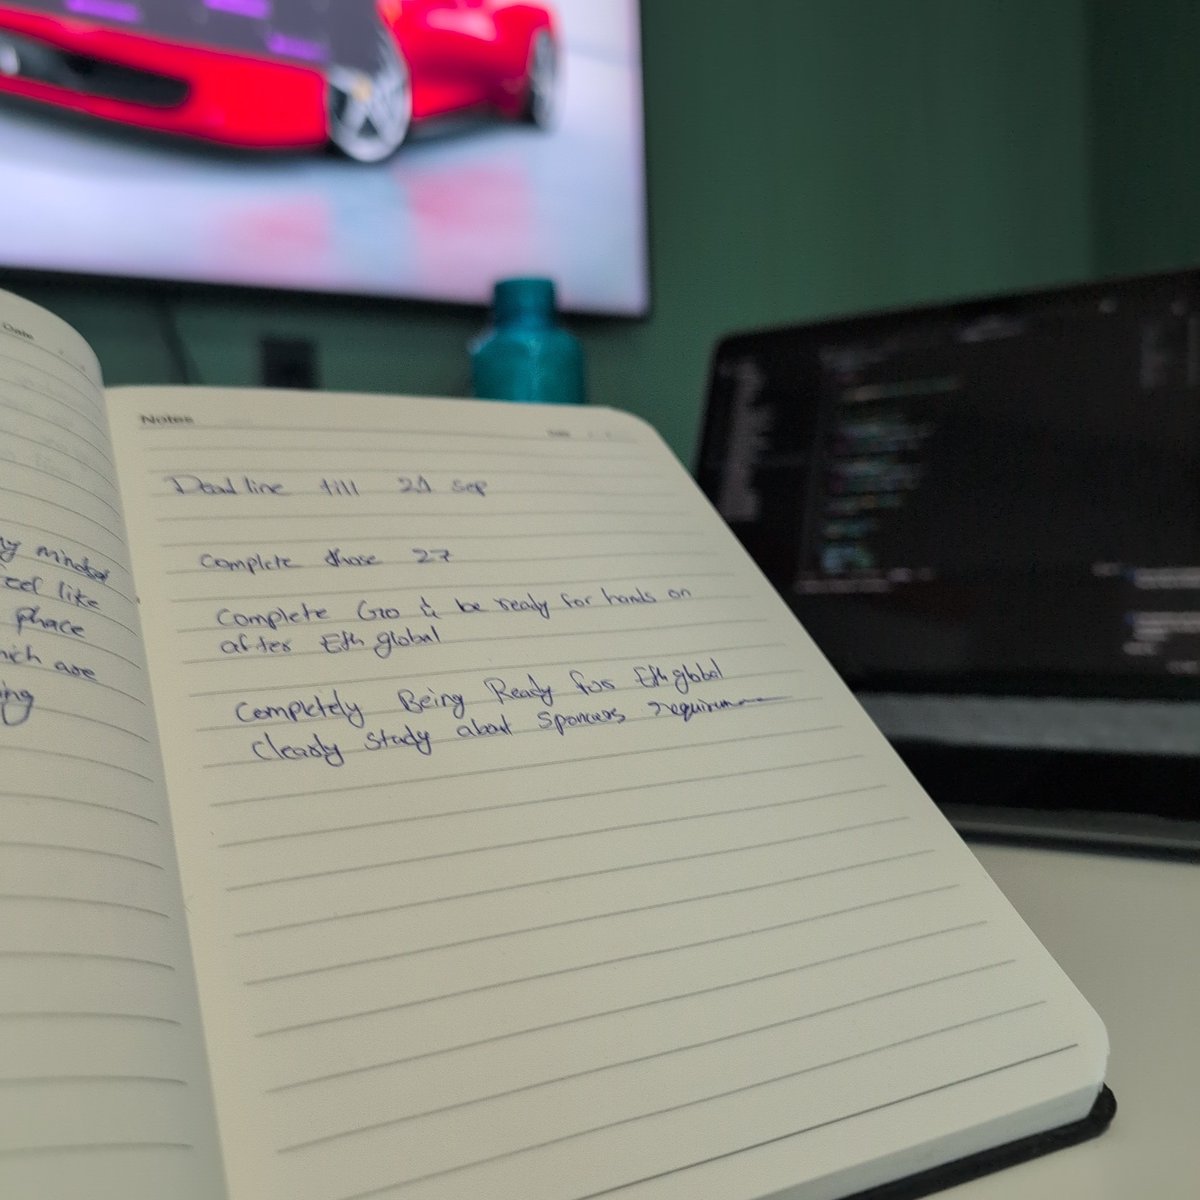 Date
y mindset
eel like
phace
hich are
ing
Notes
Deadline till 24 sep
Complete those 27
Complete Go & be ready for hands on
after Eth global
Completely Being Ready for Ethglobal
Clearly study about sponcers